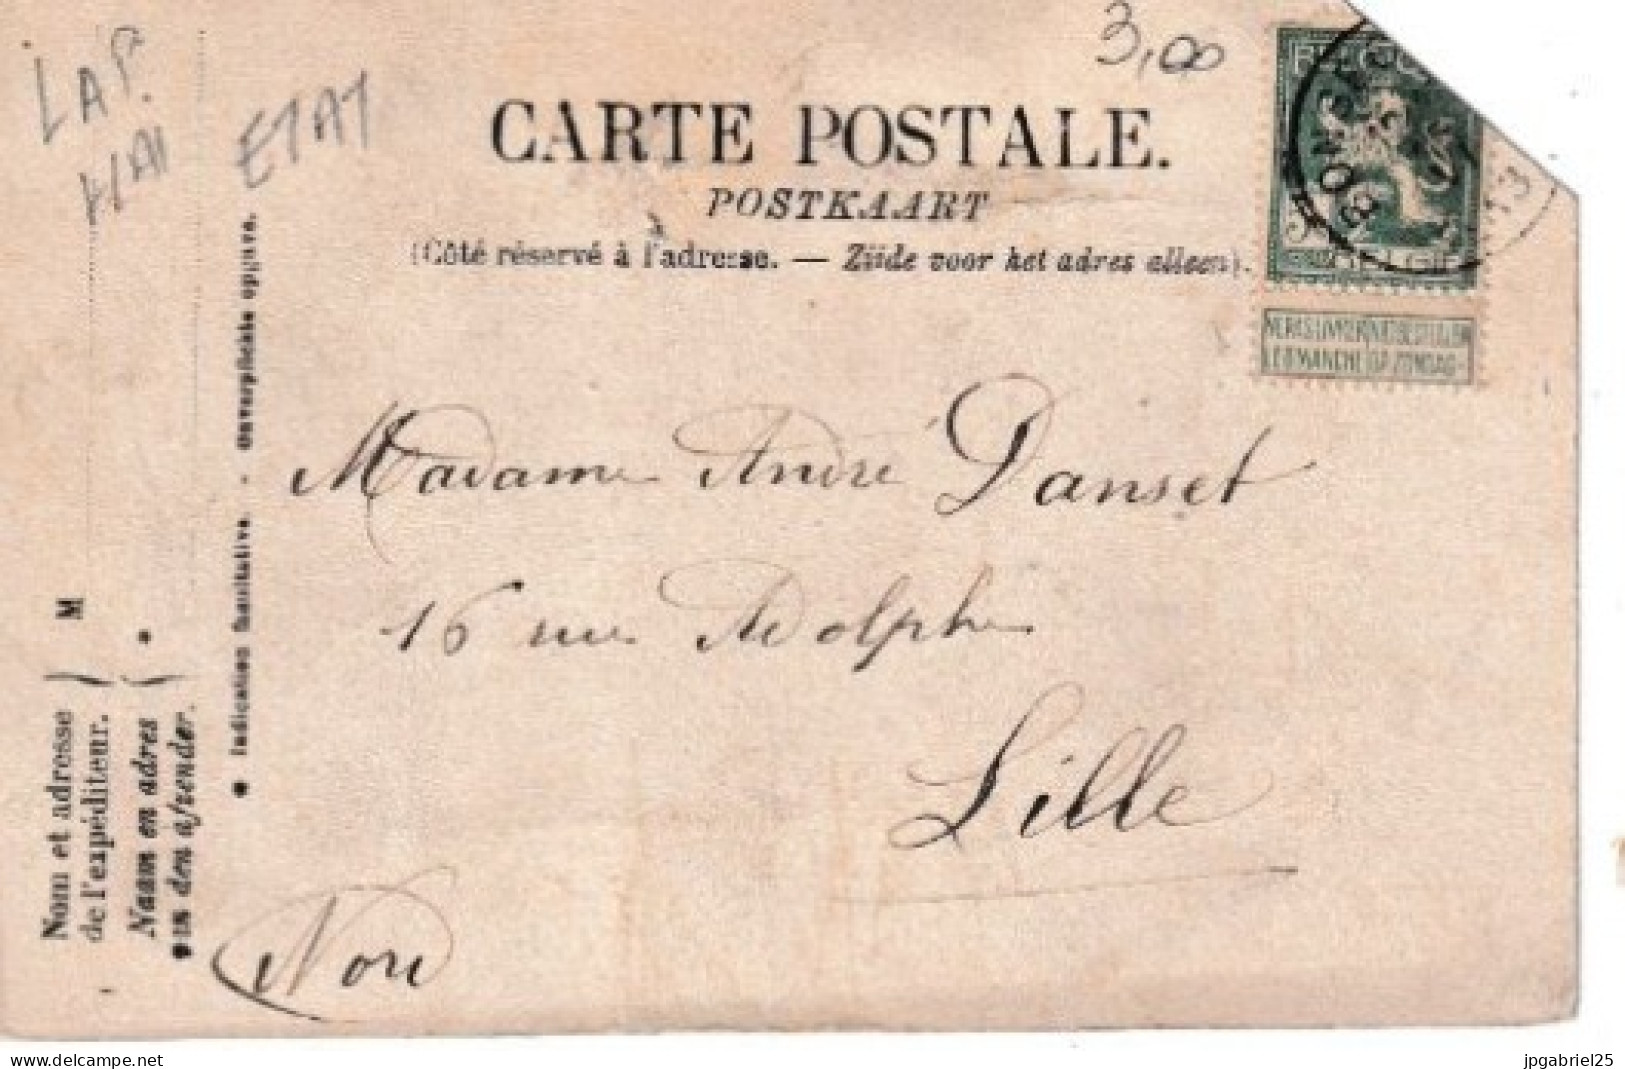 3,00
LAP.
HAI
ETAT
CARTE POSTALE.
POSTKAART
(Côté réservé à l'adresse. — Zijde voor het adres alleen).
BONSECO
13
BELGIQUE
BELGIE
NE PAS LIVRER NIET BESTELLEN
LE DIMANCHE OP ZONDAG
Indication facultative. - Onverplichte opgave.
M
Nom et adresse
de l'expéditeur.
Naam en adres
van den afzender.
Madame André Danset
16 rue Adolphe
Lille
Nord
www.delcampe.net
jpgabriel25